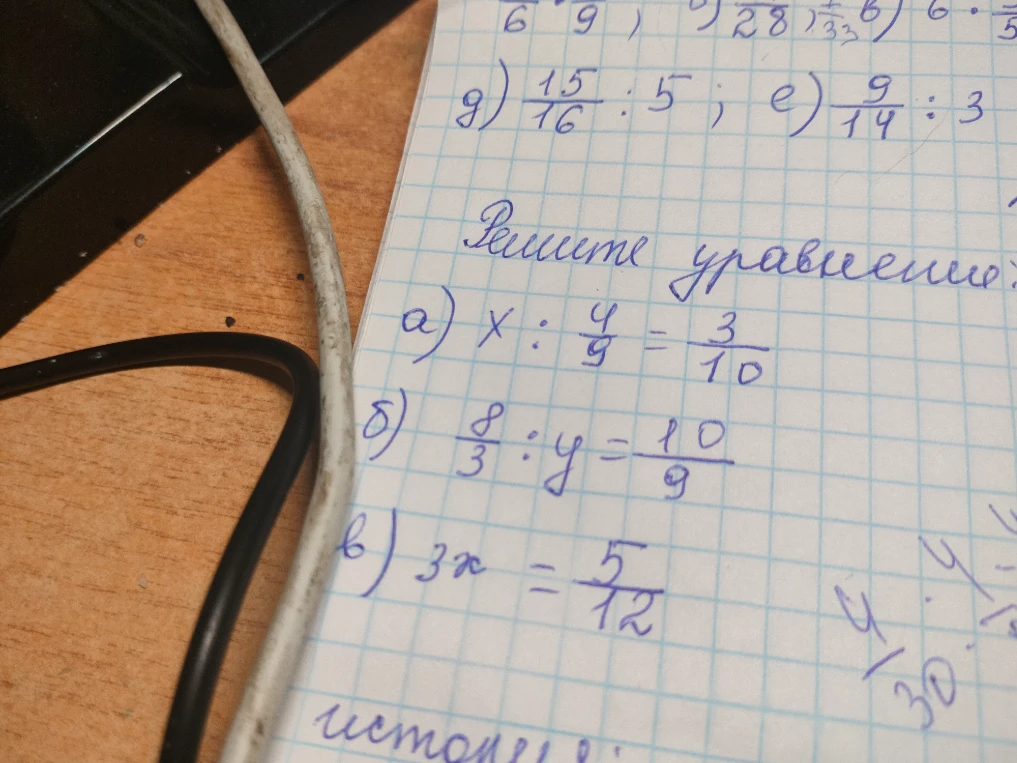 6 9 ; 28 ; 33 в) 6 · 5
д) 15/16 : 5 ; е) 9/14 : 3
Решите уравнение:
а) x : 4/9 = 3/10
б) 8/3 : y = 10/9
в) 3x = 5/12
30